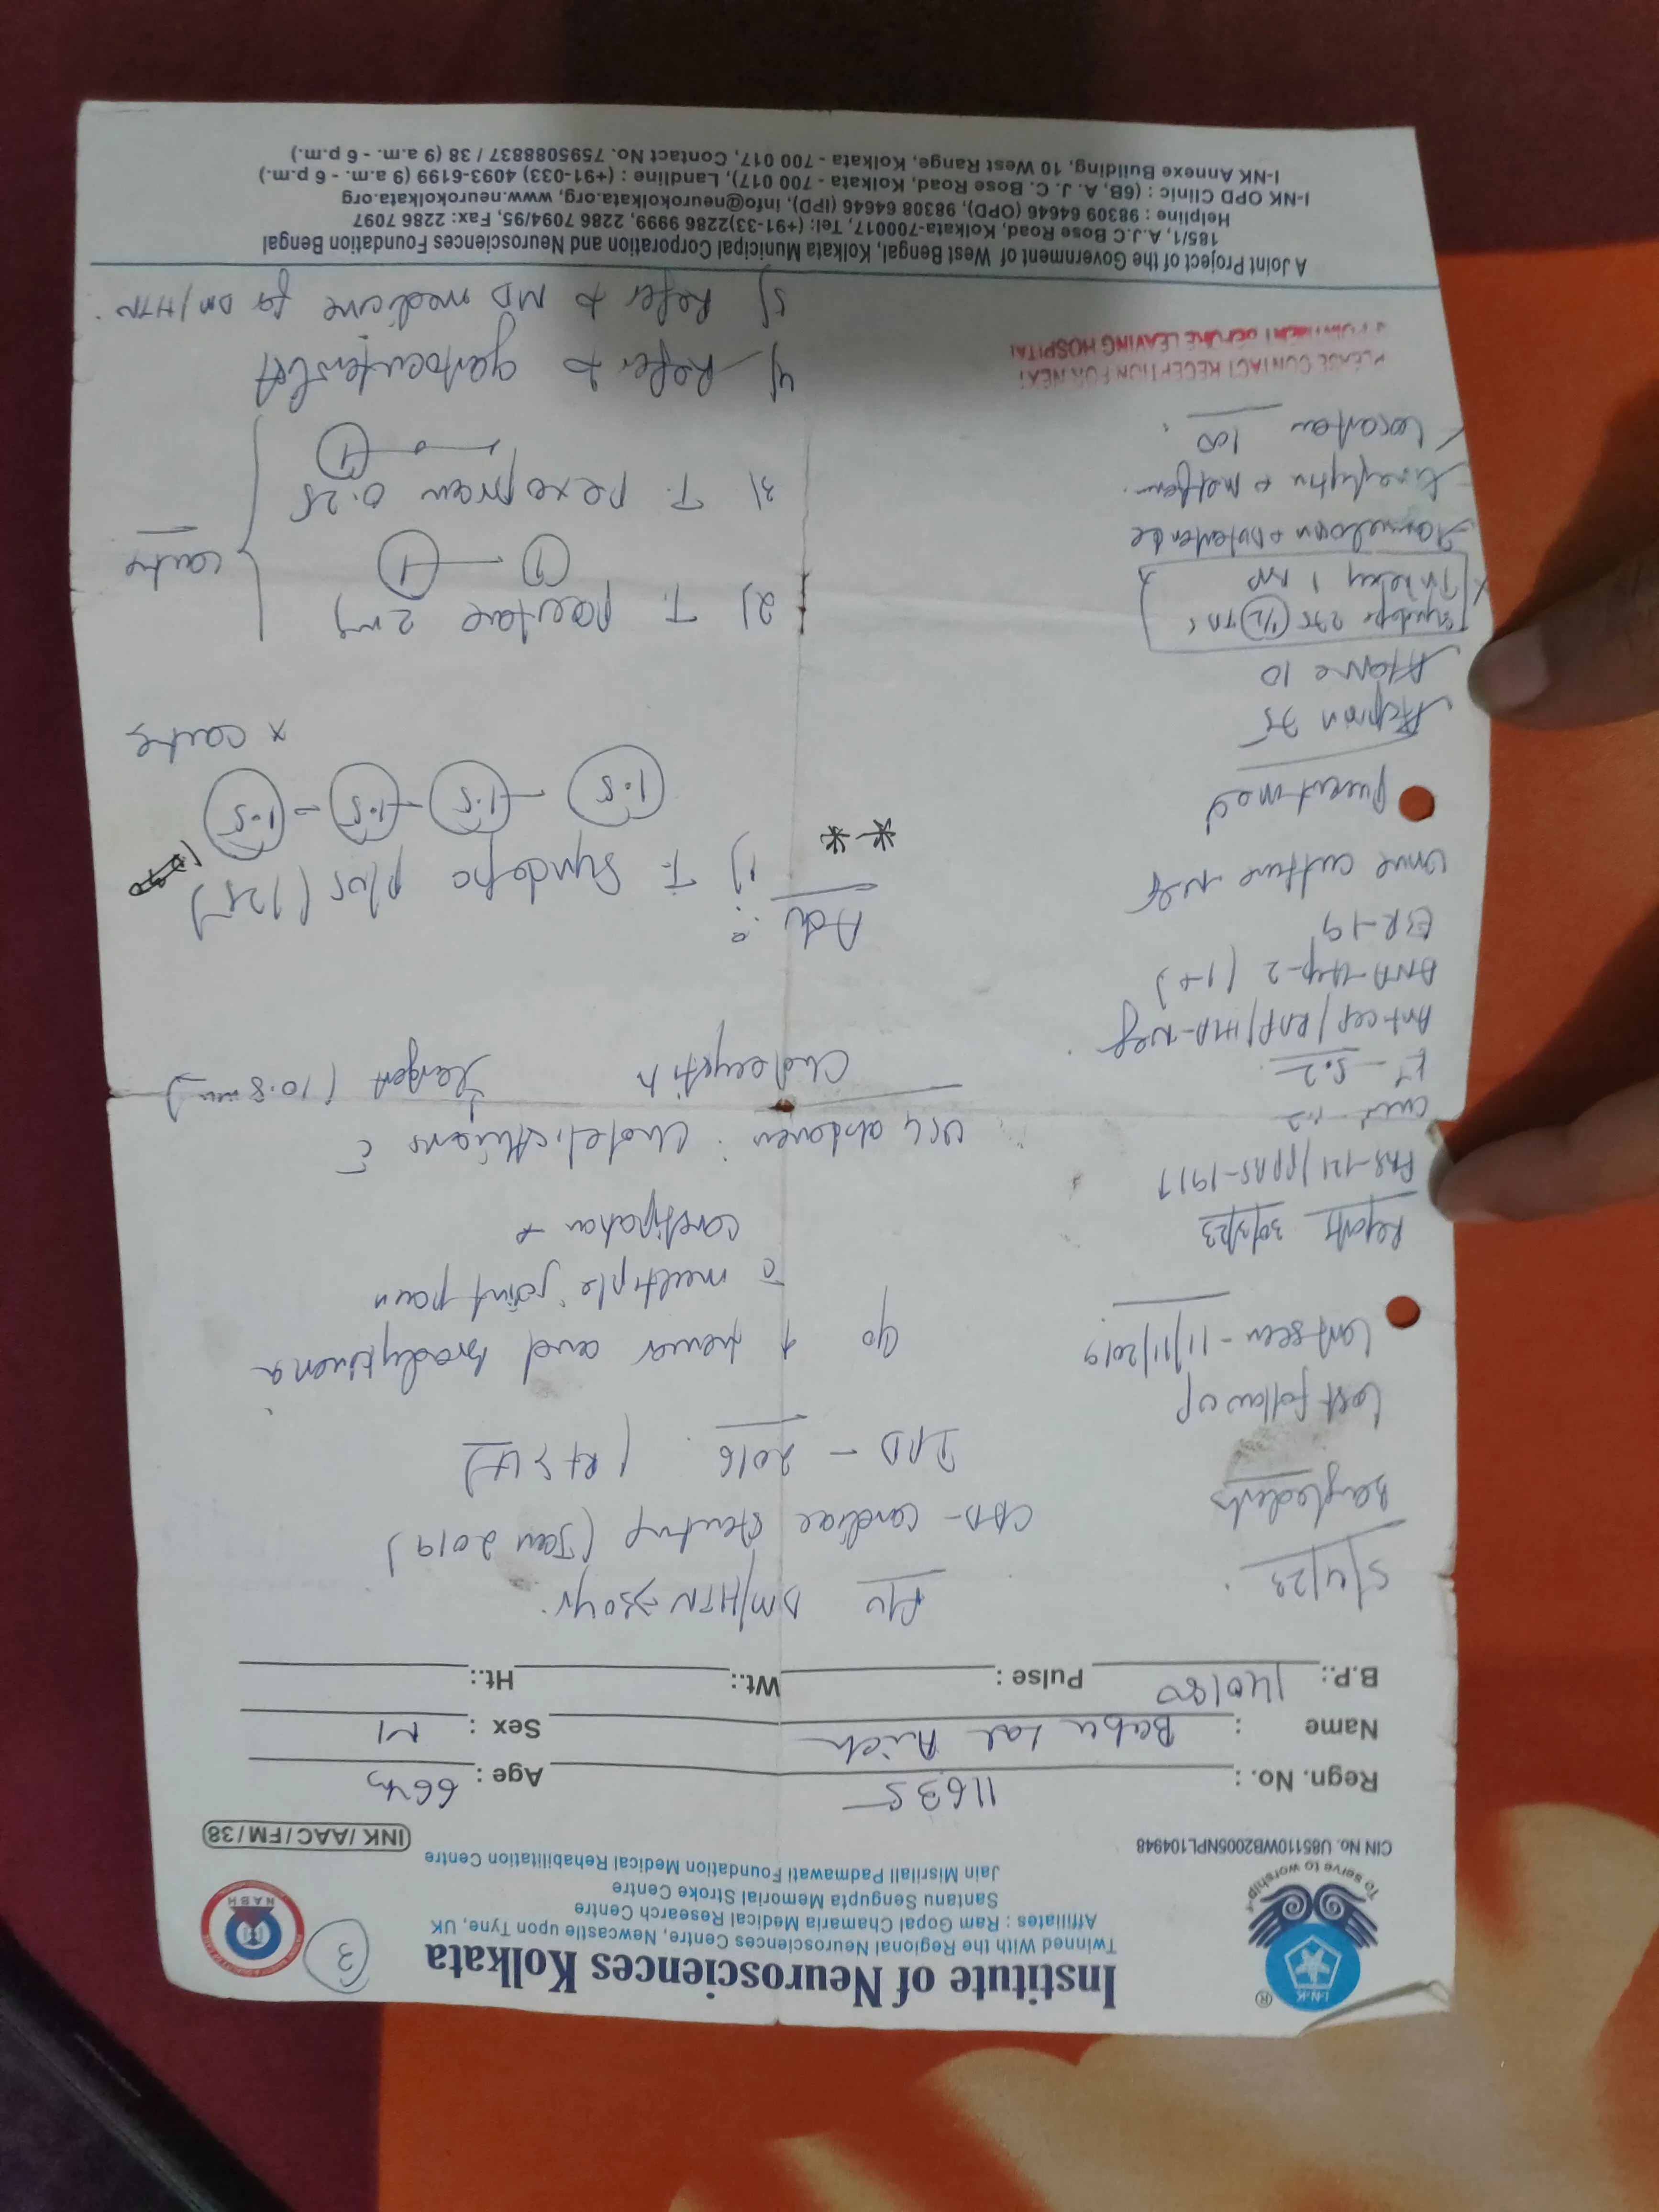 I-N-K
To serve to worship
®
Institute of Neurosciences Kolkata
Twinned With the Regional Neurosciences Centre, Newcastle upon Tyne, UK
Affiliates : Ram Gopal Chamaria Medical Research Centre
Santanu Sengupta Memorial Stroke Centre
Jain Misrilall Padmawati Foundation Medical Rehabilitation Centre
3
NABH
CIN No. U85110WB2005NPL104948
INK/AAC/FM/38
Regn. No. : 11635
Age : 66 yrs
Name : Babu Lal Aich
Sex : M
B.P.: 140/80
Pulse :
Wt.:
Ht.:
5/4/23
Bangladesh
Lost follow up
Last seen - 11/11/2019
Reports 30/3/23
FBS-121/PPBS-191
Creat-1.2
K+-5.2
Anti CCP/RAF/
ANA-Hep-2 (1+)
ESR-19
Urine culture neg
Present med
75
10
Syndopa 275 (1/2)
1 mg
+ metform
100
PLEASE CONTACT RECEPTION FOR NEXT
APPOINTMENT BEFORE LEAVING HOSPITAL
DM/HTN → 30yr.
CAD- cardiac stenting (Jan 2019)
IPD - 2016 (Rt > Lt)
↑ tremor and bradykinesia
c̄ multiple joint pain
constipation +
USG abdomen : Cholelithiasis c̄
Cholecystitis largest (10.8 mm)
Adv :
** 1) T. Syndopa plus (125)
1.5 - 1.5 - 1.5 - 1.5
x continue
2) T. Pacitane 2 mg
1 - 1
3) T. Pexopram 0.25
1
continue
4) Refer to gastroenterologist
5) Refer to MD medicine for DM/HTN.
A Joint Project of the Government of West Bengal, Kolkata Municipal Corporation and Neurosciences Foundation Bengal
185/1, A.J.C Bose Road, Kolkata-700017, Tel: (+91-33)2286 9999, 2286 7094/95, Fax: 2286 7097
Helpline : 98309 64646 (OPD), 98308 64646 (IPD), info@neurokolkata.org, www.neurokolkata.org
I-NK OPD Clinic : (6B, A. J. C. Bose Road, Kolkata - 700 017), Landline : (+91-033) 4093-6199 (9 a.m. - 6 p.m.)
I-NK Annexe Building, 10 West Range, Kolkata - 700 017, Contact No. 7595088837 / 38 (9 a.m. - 6 p.m.)